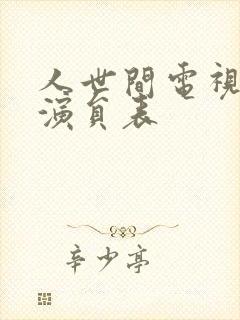 人世間電視
演員表
辛少亭